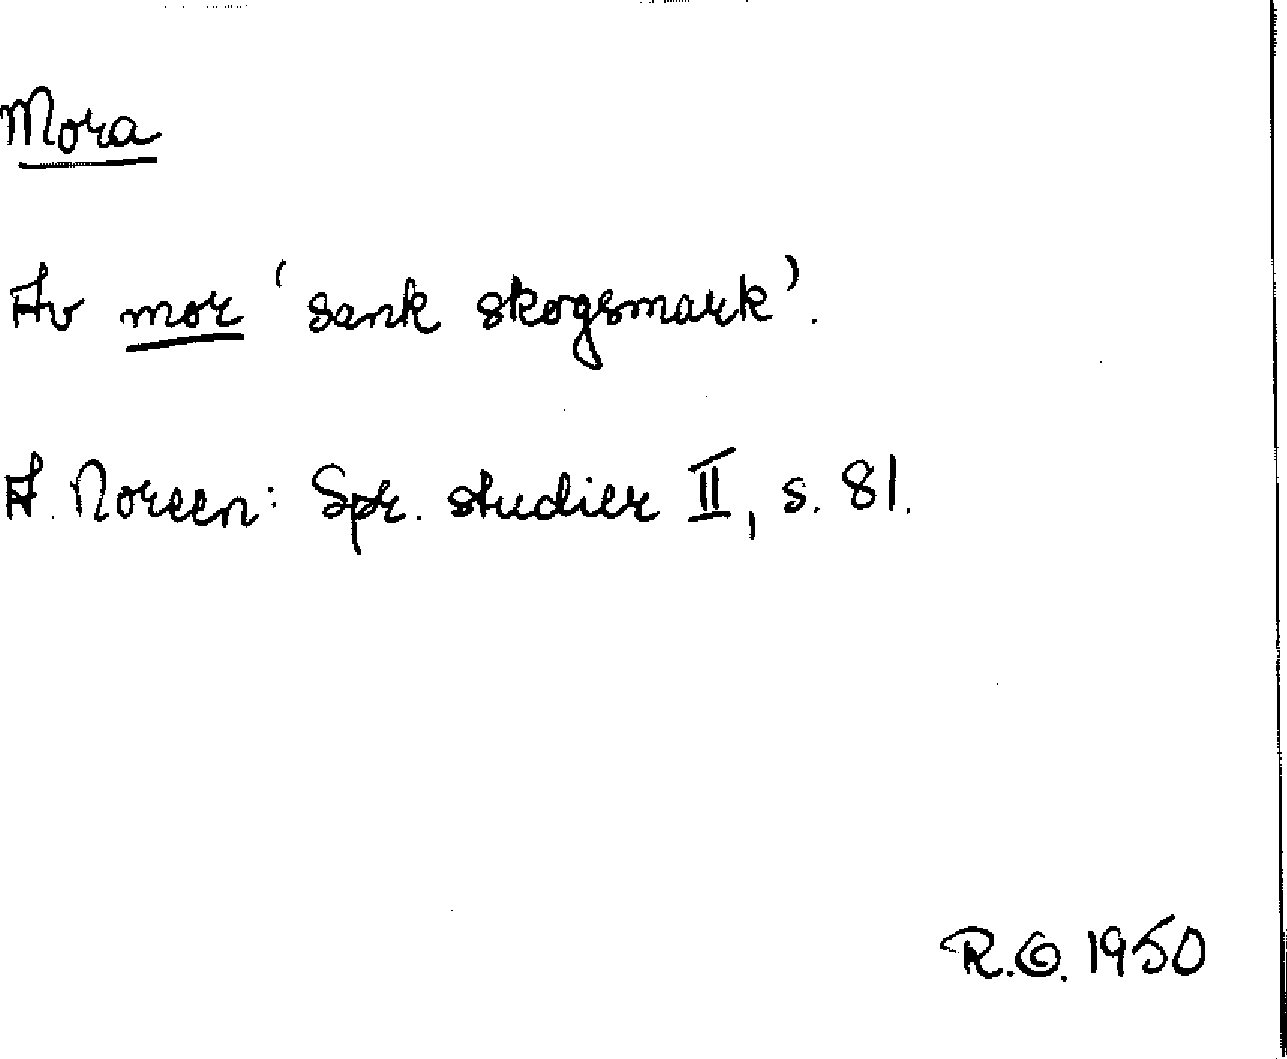 Mora
Av mor 'sank skogsmark'.
A. Noreen: Spr. studier II, s. 81.
R.G. 1950